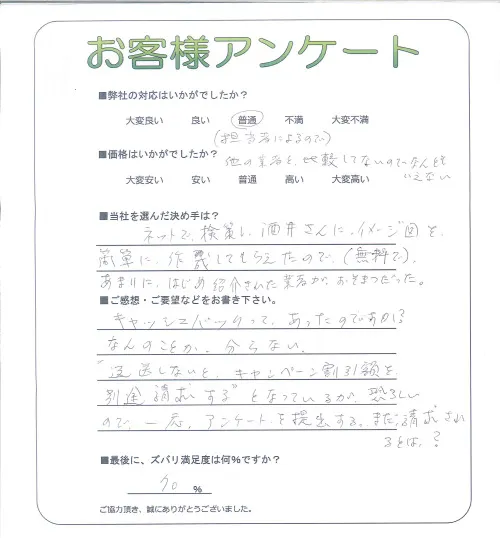 お客様アンケート
■弊社の対応はいかがでしたか？
大変良い 良い 普通 不満 大変不満
(担当者によるので)
■価格はいかがでしたか？ 他の業者と、比較してないのでなんとも
大変安い 安い 普通 高い 大変高い いえない
■当社を選んだ決め手は？
ネットで、検索し、酒井さんに、イメージ図を、
簡単に、作成してもらえたので、(無料で)。
あまりに、はじめ紹介された業者が、おそまつだった。
■ご感想・ご要望などをお書き下さい。
キャッシュバックって、あったのですか？
なんのことか、分らない。
"返送しないと、キャンペーン割引額を、
別途請求する"となっているが、恐ろしい
ので、一応、アンケートを提出する。まだ請求され
るとは、？
■最後に、ズバリ満足度は何%ですか？
70 %
ご協力頂き、誠にありがとうございました。